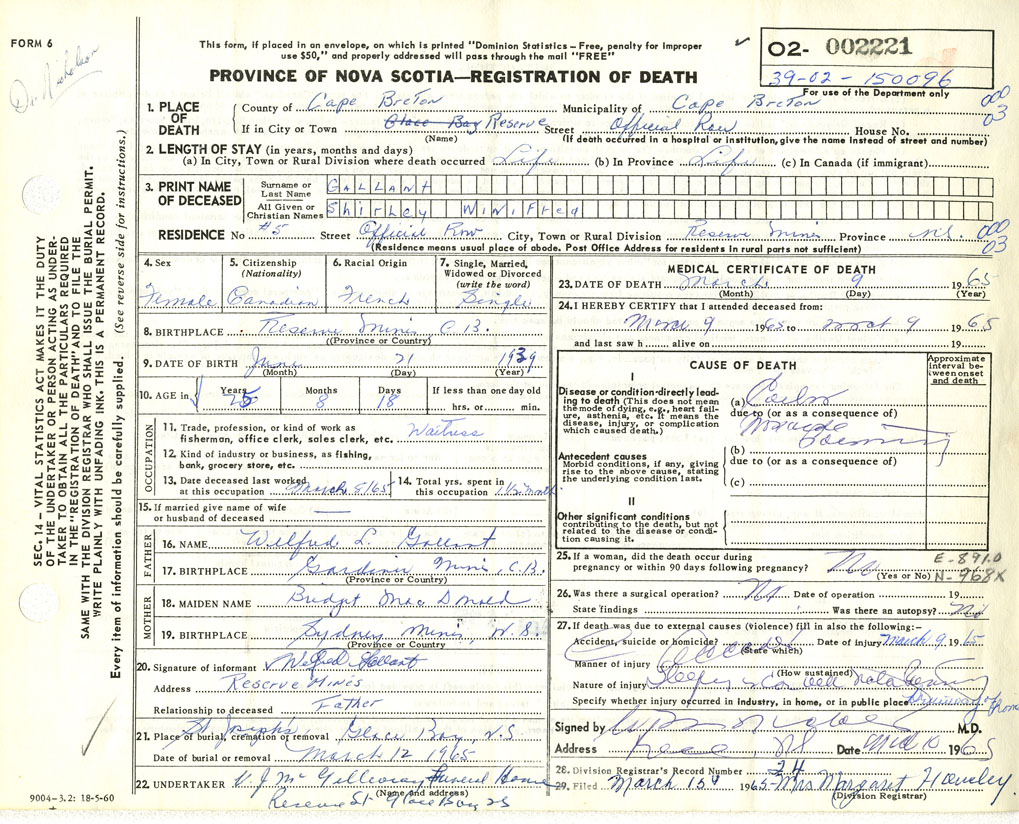 FORM 6
Dr. Nicholson
This form, if placed in an envelope, on which is printed "Dominion Statistics – Free, penalty for improper
use $50," and properly addressed will pass through the mail "FREE"
✓
O2- 002221
39-02-150096
For use of the Department only
PROVINCE OF NOVA SCOTIA—REGISTRATION OF DEATH
000
03
1. PLACE OF DEATH
County of Cape Breton Municipality of Cape Breton
If in City or Town Glace Bay Reserve Street Official Row House No.
(Name) (If death occurred in a hospital or institution, give the name instead of street and number)
2. LENGTH OF STAY (in years, months and days)
(a) In City, Town or Rural Division where death occurred Life (b) In Province Life (c) In Canada (if immigrant)
3. PRINT NAME OF DECEASED
Surname or Last Name GALLANT
All Given or Christian Names Shirley WINIFred
RESIDENCE No #5 Street Official Row City, Town or Rural Division Reserve Mines Province N.S.
000
03
(Residence means usual place of abode. Post Office Address for residents in rural parts not sufficient)
4. Sex
Female
5. Citizenship
(Nationality)
Canadian
6. Racial Origin
French
7. Single, Married,
Widowed or Divorced
(write the word)
Single
8. BIRTHPLACE Reserve Mines C.B.
(Province or Country)
9. DATE OF BIRTH June 21 1939
(Month) (Day) (Year)
10. AGE in
Years
25
Months
8
Days
18
If less than one day old
hrs. or min.
OCCUPATION
11. Trade, profession, or kind of work as
fisherman, office clerk, sales clerk, etc. Waitress
12. Kind of industry or business, as fishing,
bank, grocery store, etc.
13. Date deceased last worked
at this occupation March 9/65
14. Total yrs. spent in
this occupation 1 1/2 months
15. If married give name of wife
or husband of deceased —
FATHER
16. NAME Wilfred L. Gallant
17. BIRTHPLACE Gardiner Mines, C.B.
(Province or Country)
MOTHER
18. MAIDEN NAME Bridget MacDonald
19. BIRTHPLACE Sydney Mines, N.S.
(Province or Country)
20. Signature of informant Wilfred Gallant
Address Reserve Mines
Relationship to deceased Father
21. Place of burial, cremation or removal St Joseph's Glace Bay, N.S
Date of burial or removal March 12, 1965
22. UNDERTAKER V. J. McGillivray Funeral Home
(Name and address)
Reserve St Glace Bay NS
MEDICAL CERTIFICATE OF DEATH
23. DATE OF DEATH March 9 1965
(Month) (Day) (Year)
24. I HEREBY CERTIFY that I attended deceased from:
March 9 1965 to March 9 1965
and last saw h alive on 19
CAUSE OF DEATH
Approximate
interval be-
tween onset
and death
I
Disease or condition directly lead-
ing to death (This does not mean
the mode of dying, e.g., heart fail-
ure, asthenia, etc. It means the
disease, injury, or complication
which caused death.)
(a) Carbon
due to (or as a consequence of)
Monoxide
Poisoning
Antecedent causes
Morbid conditions, if any, giving
rise to the above cause, stating
the underlying condition last.
(b)
due to (or as a consequence of)
(c)
II
Other significant conditions
contributing to the death, but not
related to the disease or condi-
tion causing it.
25. If a woman, did the death occur during
pregnancy or within 90 days following pregnancy? No
(Yes or No)
E-891.0
N-968X
26. Was there a surgical operation? No Date of operation 19
State findings Was there an autopsy? No
27. If death was due to external causes (violence) fill in also the following:–
Accident, suicide or homicide? Accident Date of injury March 9 1965
(State which)
Manner of injury
(How sustained)
Nature of injury Sleeping in
Specify whether injury occurred in industry, in home, or in public place
Signed by M.D.
Address N.S. Date Mch 10 1965
28. Division Registrar's Record Number 24
29. Filed March 15th 1965 Mrs Margaret
(Division Registrar)
SEC. 14 – VITAL STATISTICS ACT MAKES IT THE DUTY
OF THE UNDERTAKER OR PERSON ACTING AS UNDER-
TAKER TO OBTAIN ALL THE PARTICULARS REQUIRED
IN THE "REGISTRATION OF DEATH" AND TO FILE THE
SAME WITH THE DIVISION REGISTRAR WHO SHALL ISSUE THE BURIAL PERMIT.
WRITE PLAINLY WITH UNFADING INK. THIS IS A PERMANENT RECORD.
Every item of information should be carefully supplied. (See reverse side for instructions.)
9004–3.2: 18-5-60